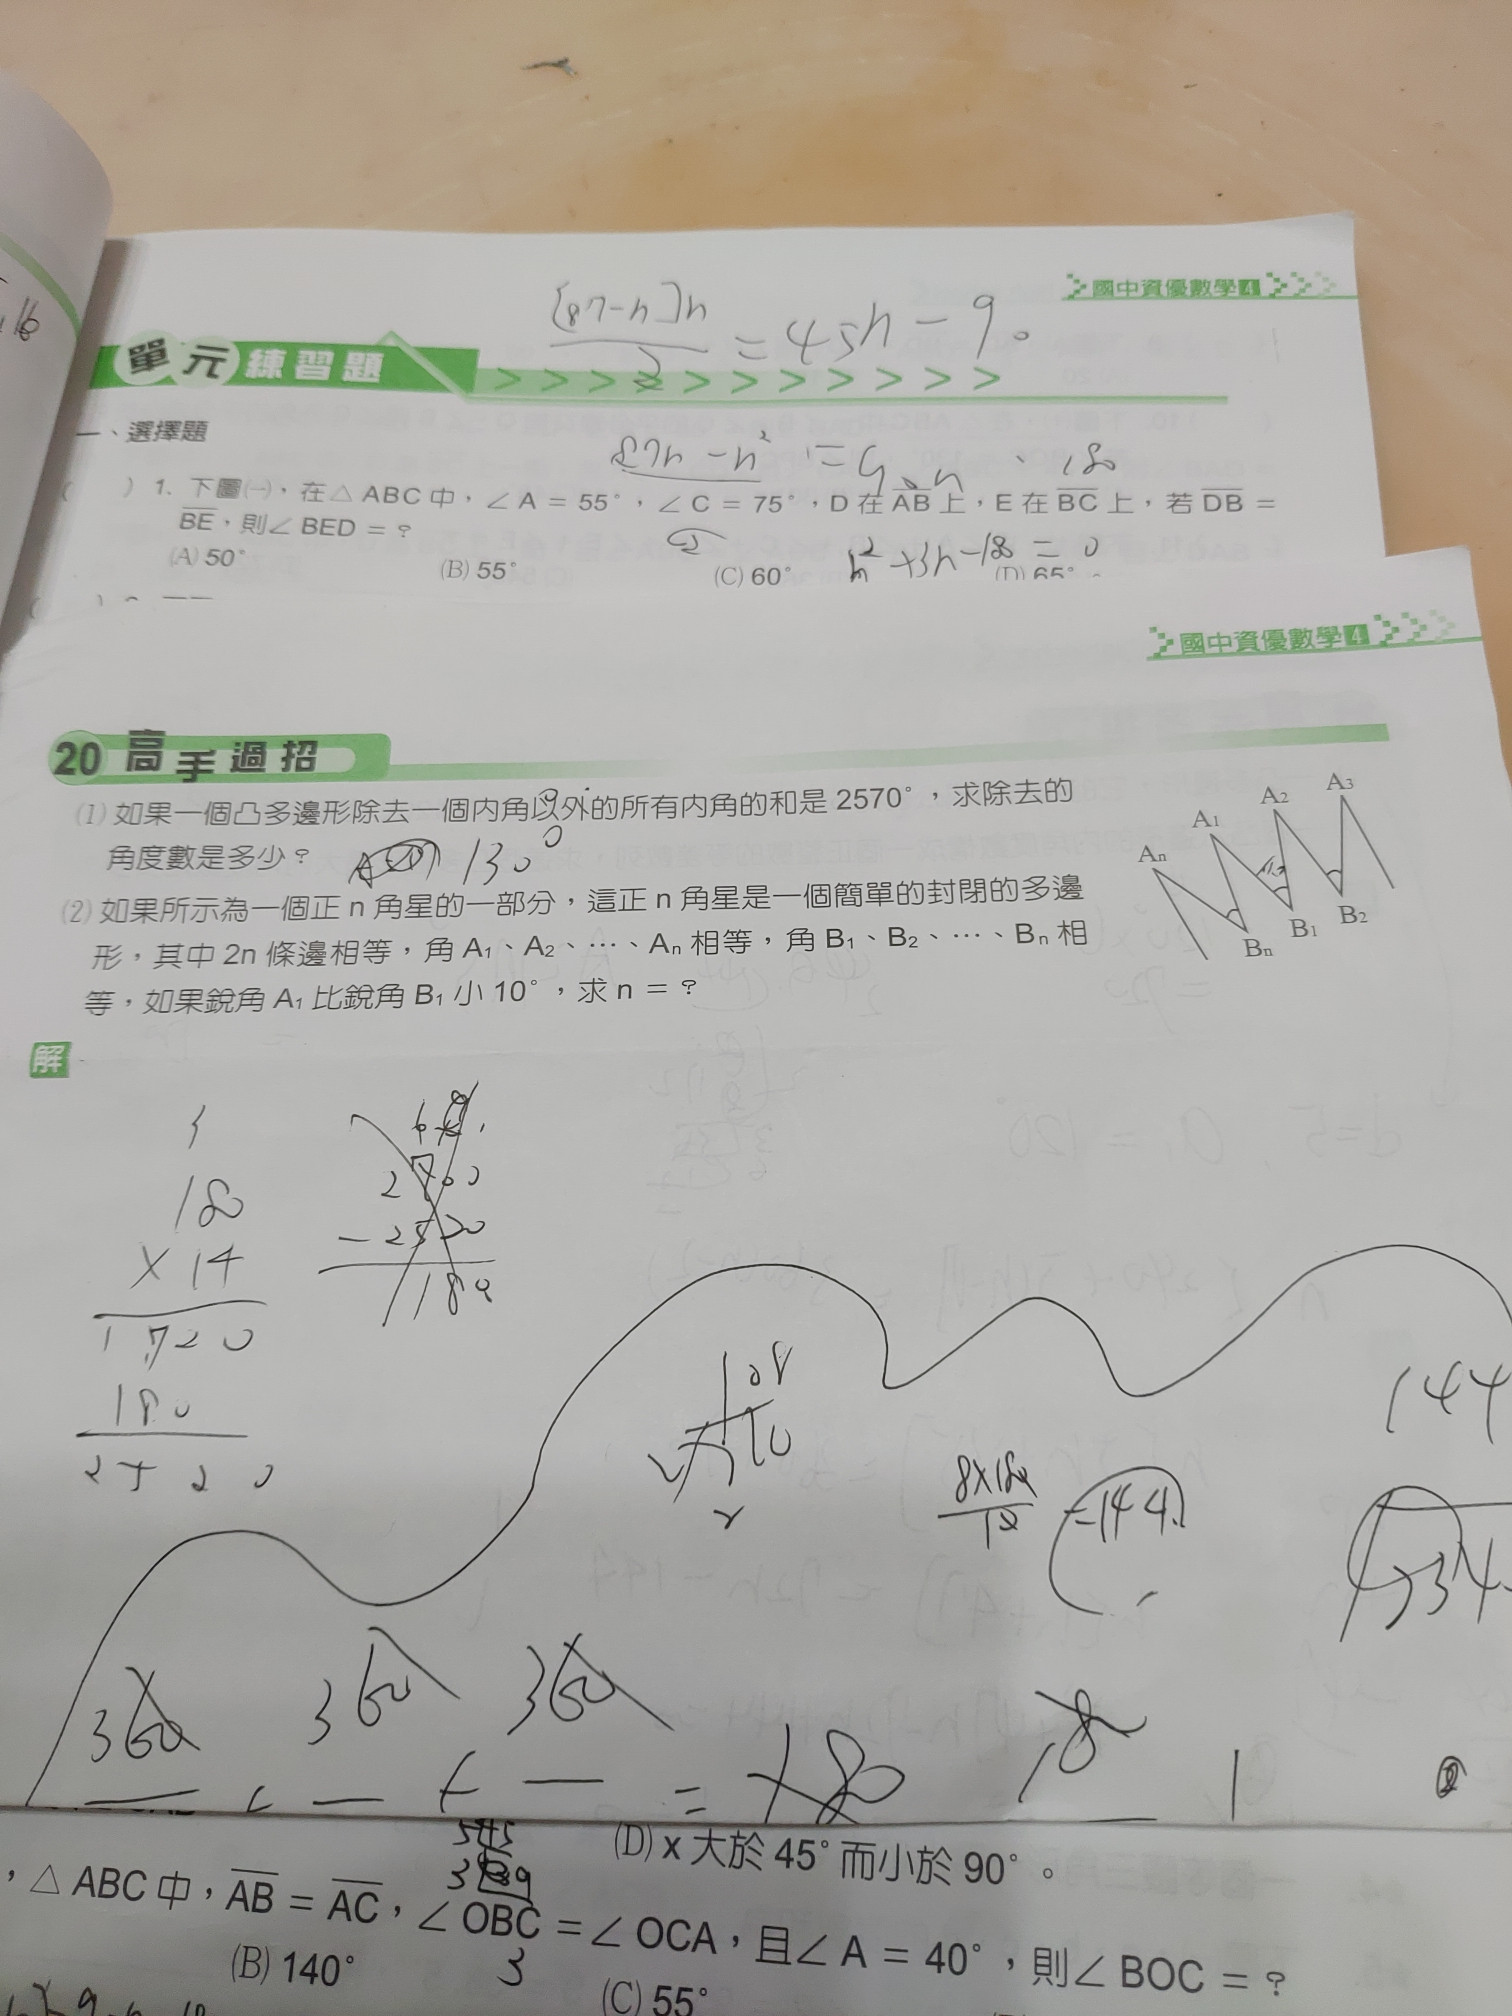 16
國中資優數學4
[87-n]n
2
=45n-90
單元練習題
一、選擇題
87n-n² = 9 n 、180
( ) 1. 下圖㈠，在△ABC中，∠A=55°，∠C=75°，D在AB上，E在BC上，若DB=
BE，則∠BED=？
(A)50°
(B)55°
(C)60°
n²+3n-18=0
(D)65°
國中資優數學4
20 高手過招
(1)如果一個凸多邊形除去一個內角以外的所有內角的和是2570°，求除去的
角度數是多少？
130°
(2)如果所示為一個正n角星的一部分，這正n角星是一個簡單的封閉的多邊
形，其中2n條邊相等，角A₁、A₂、…、Aₙ相等，角B₁、B₂、…、Bₙ相
等，如果銳角A₁比銳角B₁小10°，求n=？
Aₙ
A₁
A₂
A₃
Bₙ
B₁
B₂
解
3
180
×14
1720
180
2520
2700
-2520
180
108
8×180
=144
144
360
360
360
=180
18
1
(D)x大於45°而小於90°。
，△ABC中，AB=AC，∠OBC=∠OCA，且∠A=40°，則∠BOC=？
(B)140°
3
(C)55°